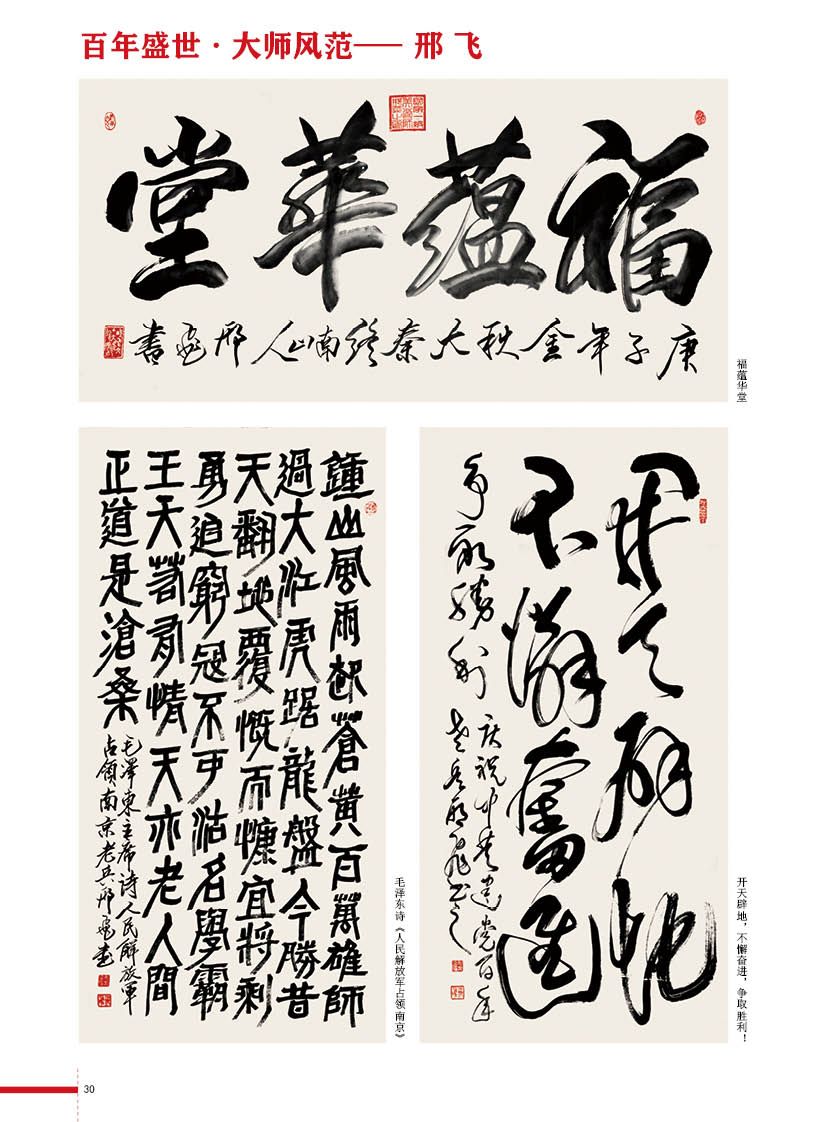 百年盛世·大师风范—— 邢 飞
福蕴華堂
庚子年金秋大秦终南山人邢飛书
福蕴华堂
鍾山風雨起蒼黄百萬雄師
過大江虎踞龍盤今勝昔
天翻地覆慨而慷宜將剩
勇追窮寇不可沽名學霸
王天若有情天亦老人間
正道是滄桑
毛澤東主席诗人民解放军
占领南京老兵邢飛书
毛泽东诗《人民解放军占领南京》
开天辟地
不懈奮進
争取勝利
庆祝中共建党百年
老兵邢飛书之
开天辟地，不懈奋进，争取胜利！
30